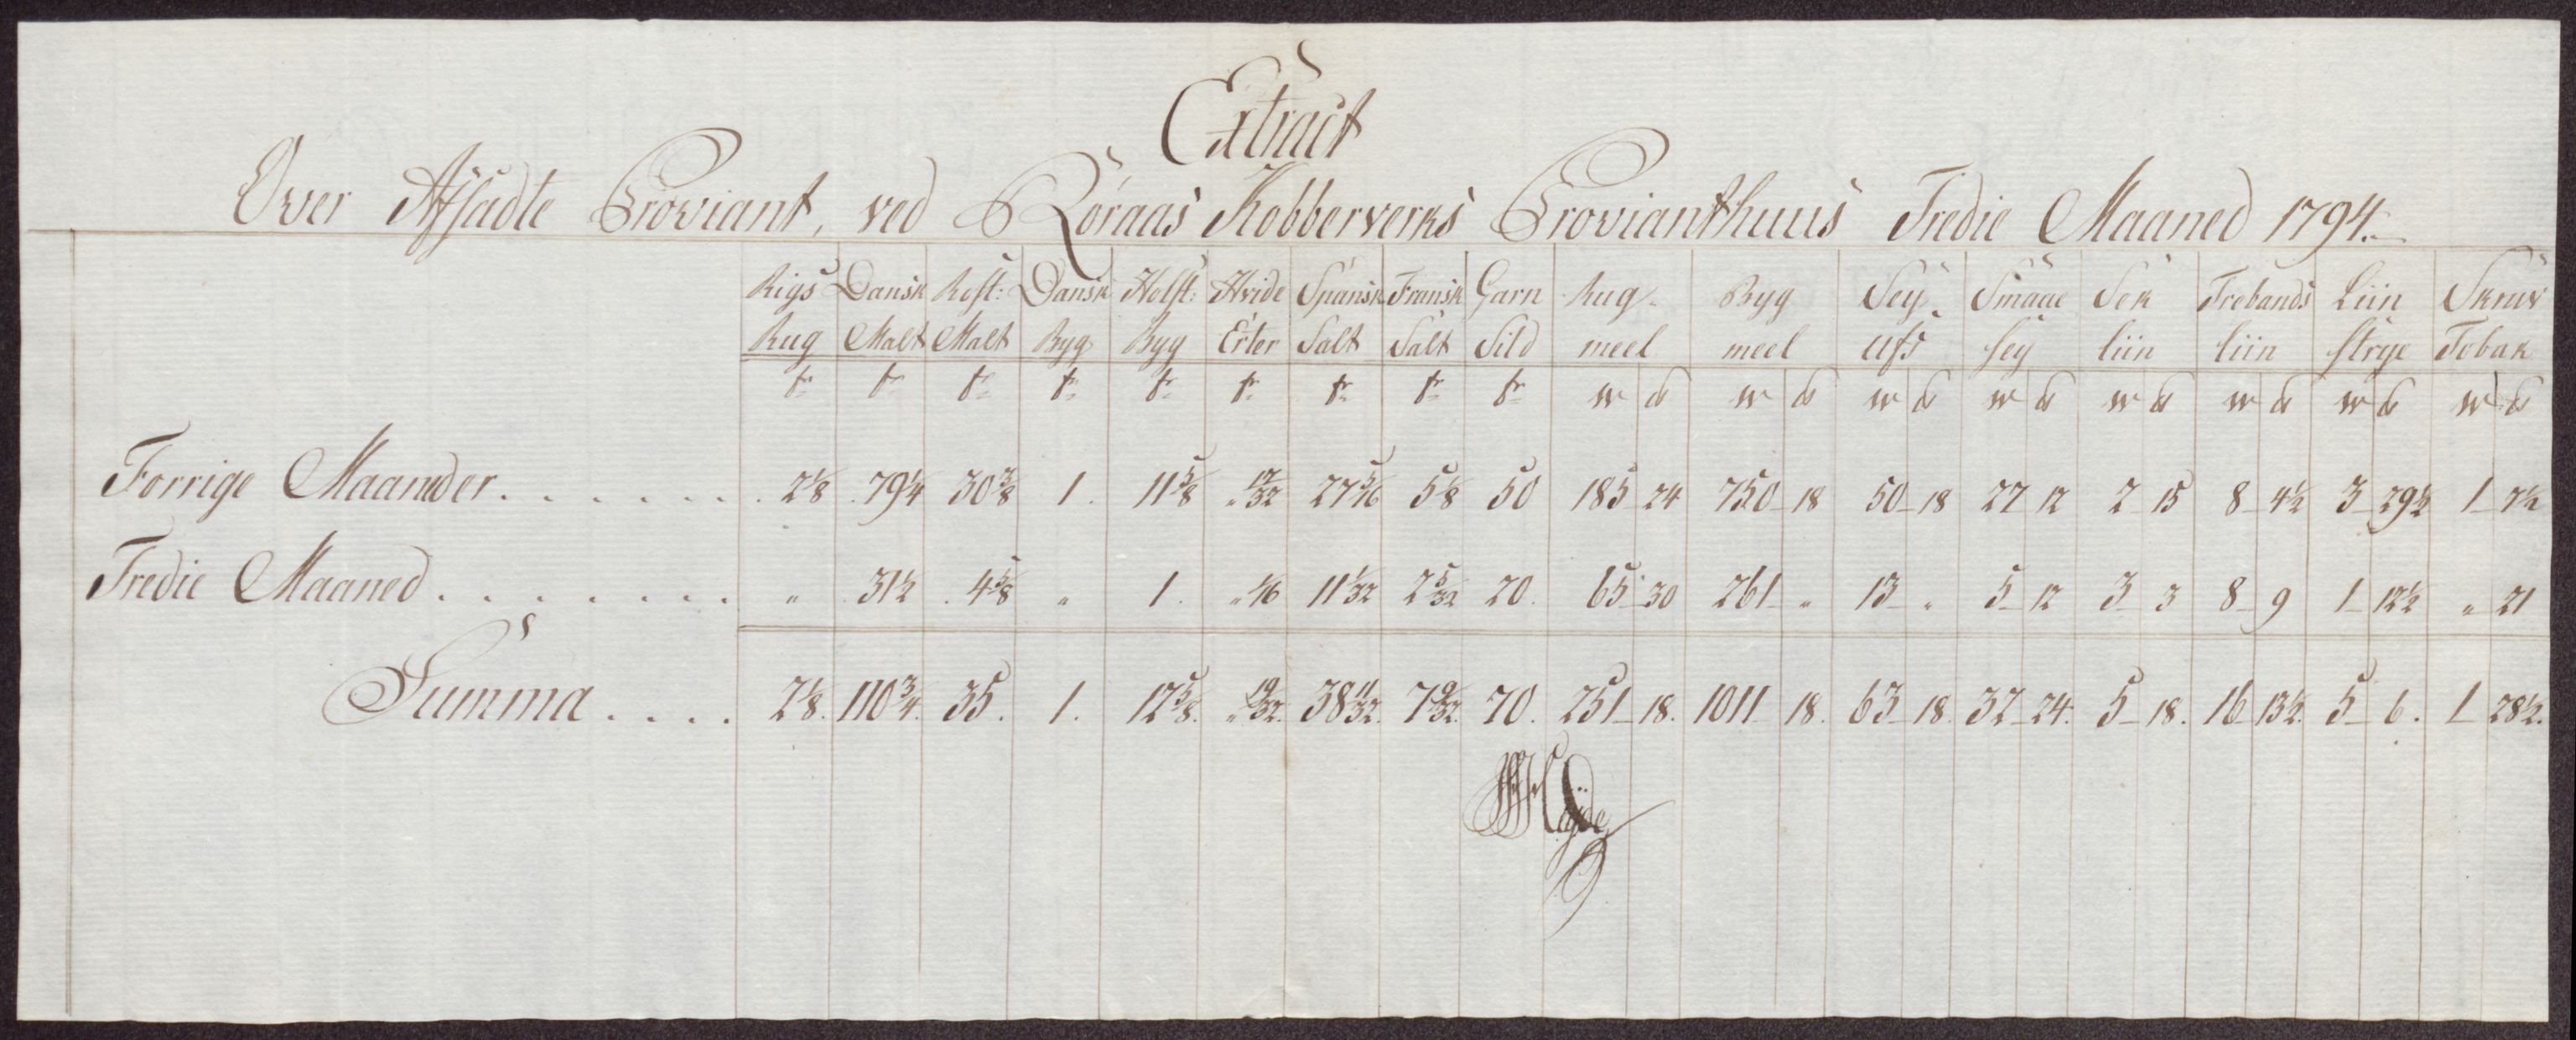 Extract
Over Afsadte Proviant, ved Röraas Kobberverks Provianthuus Tredie Maaned 1794.
Rigs Dansk Rost: Dansk Holst: Hvide Spansk Fransk Garn Rug Byg Sey Smaae Sek Trebands Liin Skruv
Rug Malt Malt Byg Byg Erter Salt Salt Sild meel meel Ufs sey liin liin strye Tobak
tr tr tr tr tr tr tr tr tr W ℔ W ℔ W ℔ W ℔ W ℔ W ℔ W ℔ W ℔
Forrige Maaneder . . . . . . . 2 1/8 79 1/4 30 3/8 1. 11 5/8 „ 17/32 27 5/16 5 1/8 50 185 24 750 18 50 18 27 12 2 15 8 4 1/2 3 29 1/2 1 7 1/2
Tredie Maaned . . . . . . . „ 31 1/2 4 5/8 „ 1. „ 1/16 11 1/32 2 5/32 20. 65 30 261 „ 13 „ 5 12 3 3 8 9 1 12 1/2 „ 21
Summa . . . . 2 1/8. 110 3/4. 35. 1. 12 5/8. „ 19/32. 38 11/32. 7 9/32. 70. 251 18. 1011 18. 63 18. 32 24. 5 18. 16 13 1/2. 5 6. 1 28 1/2.